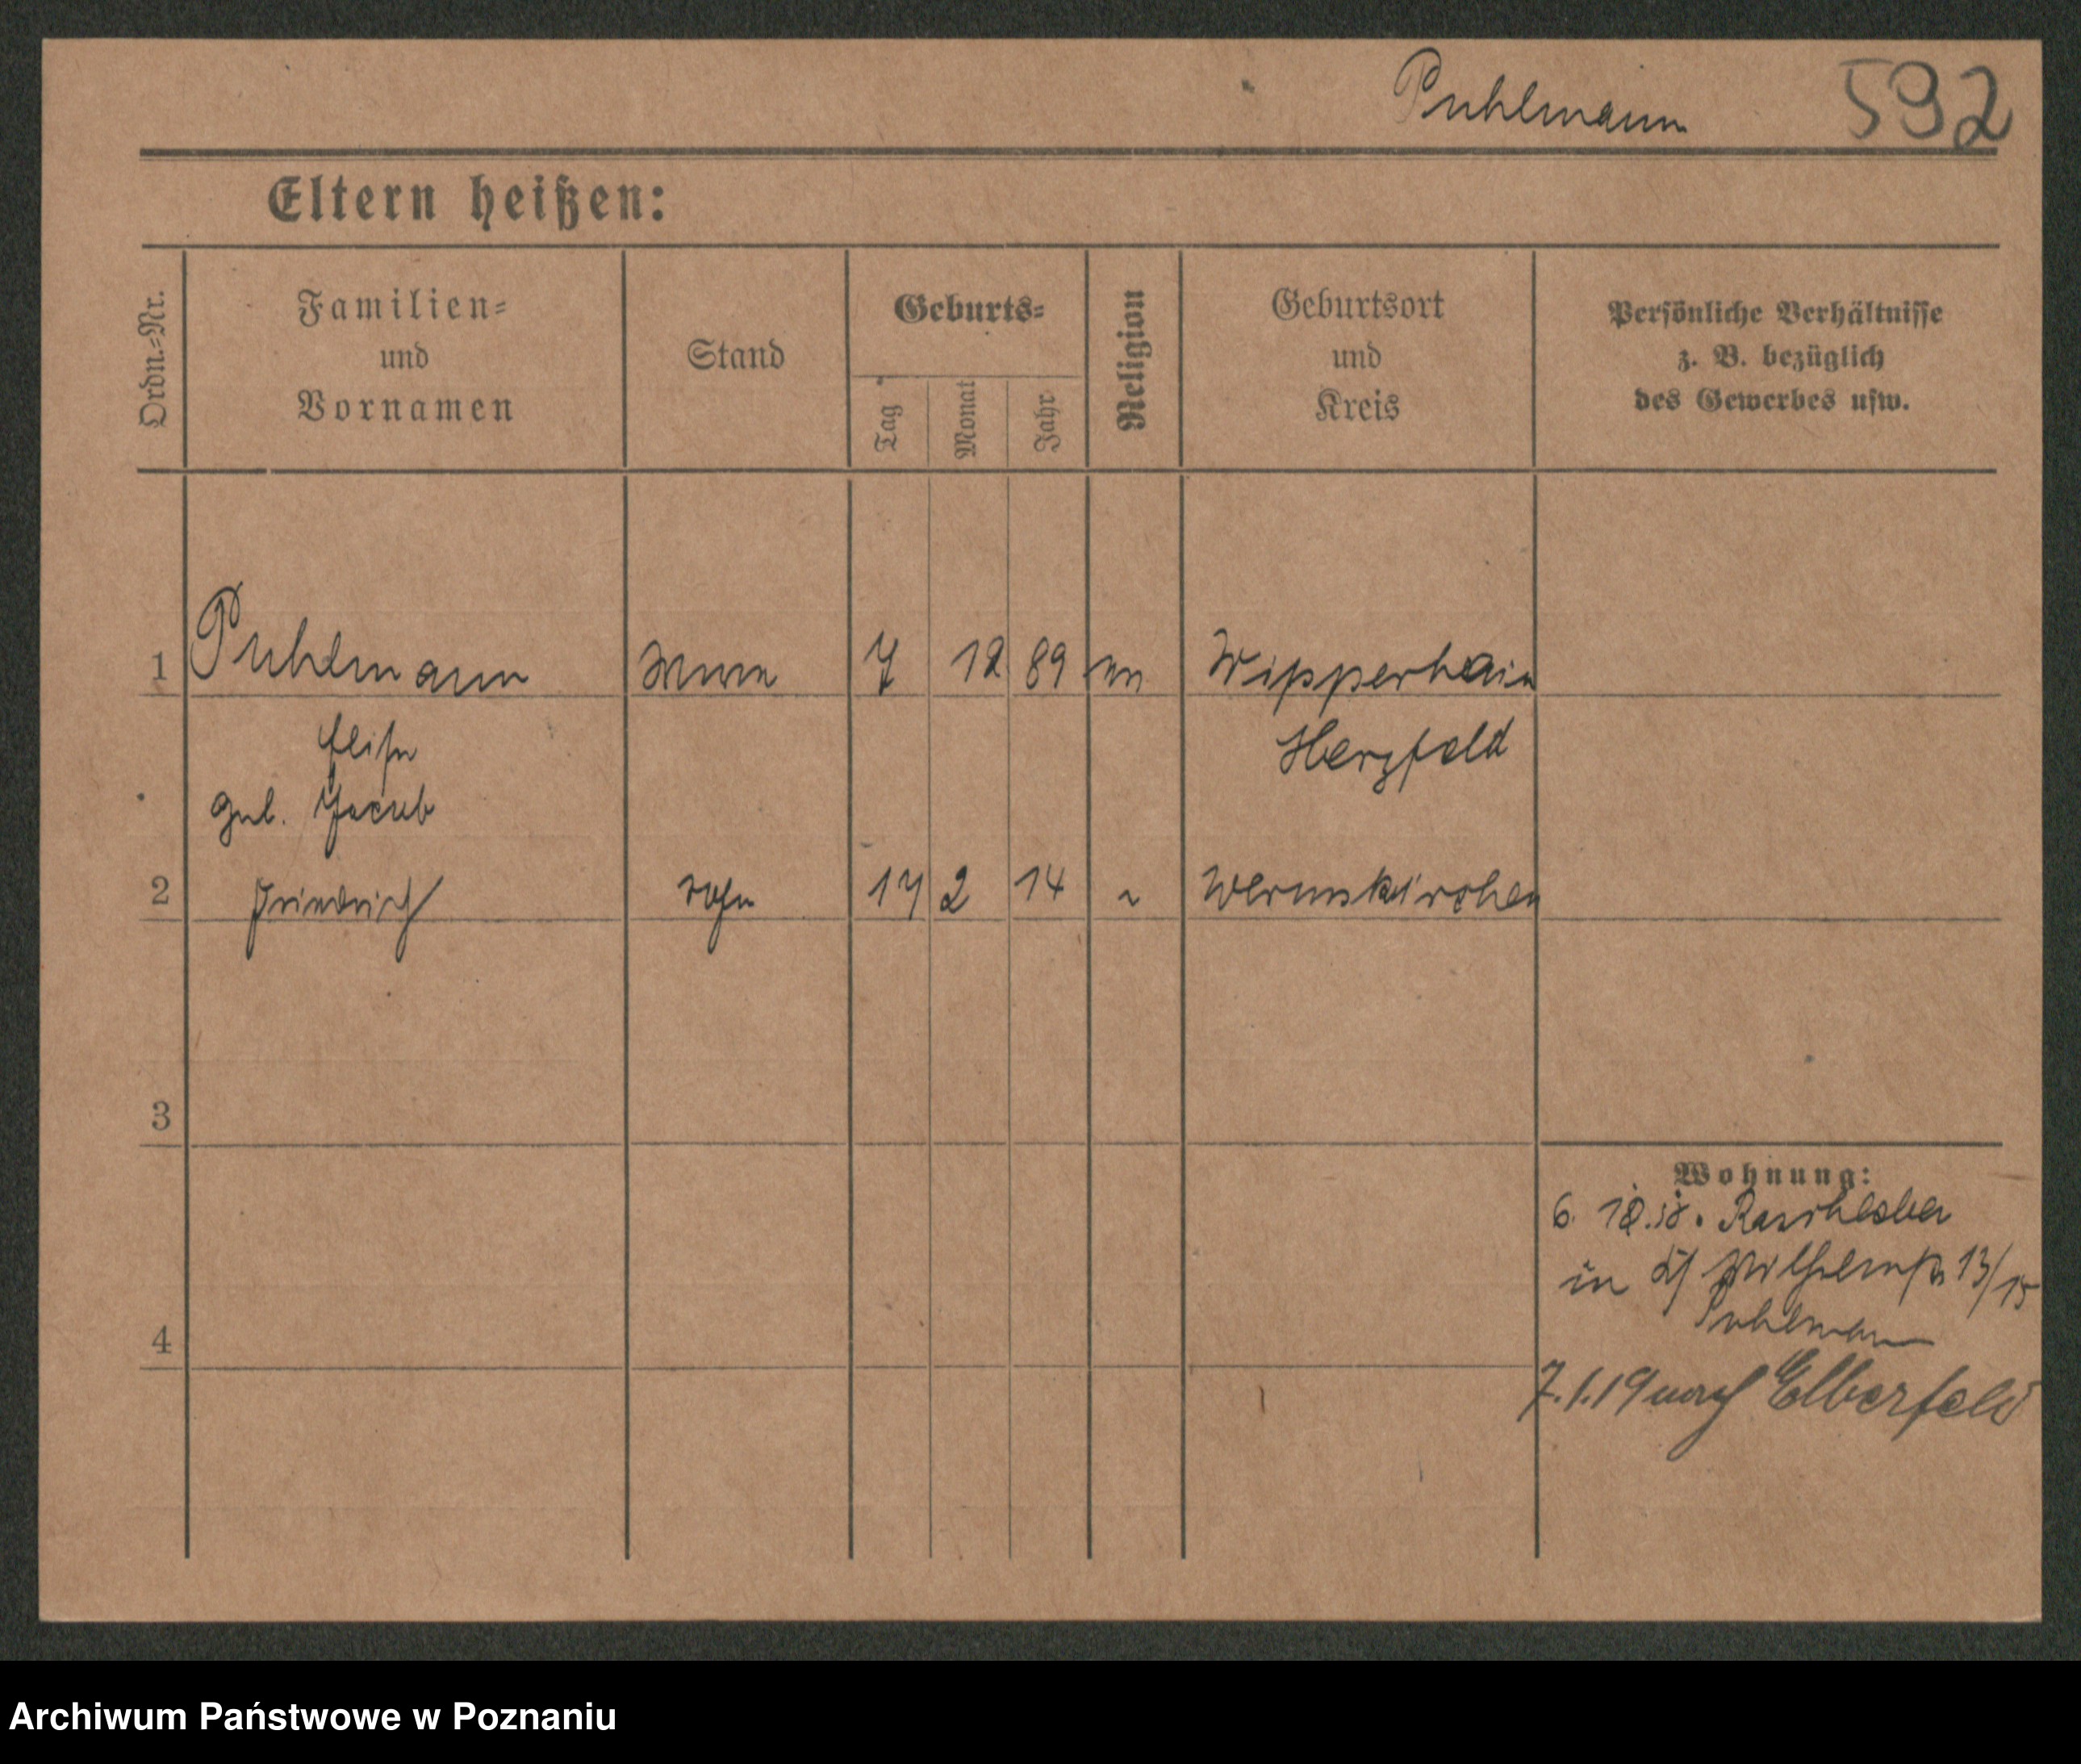 Puhlmann 592
Eltern heißen:
Ordn.-Nr.
Familien-
und
Vornamen
Stand
Geburts-
Tag
Monat
Jahr
Religion
Geburtsort
und
Kreis
Persönliche Verhältnisse
z. B. bezüglich
des Gewerbes usw.
1 Puhlmann 7 12 89 Wipperhain
Elise Herzfeld
geb. Jacob
2 Friedrich Sohn 17 2 14 Wermskirchen
3
Wohnung:
6.
in Wilhelmstr 13/15
4
Puhlmann
7.1.19 nach Elberfeld
Archiwum Państwowe w Poznaniu